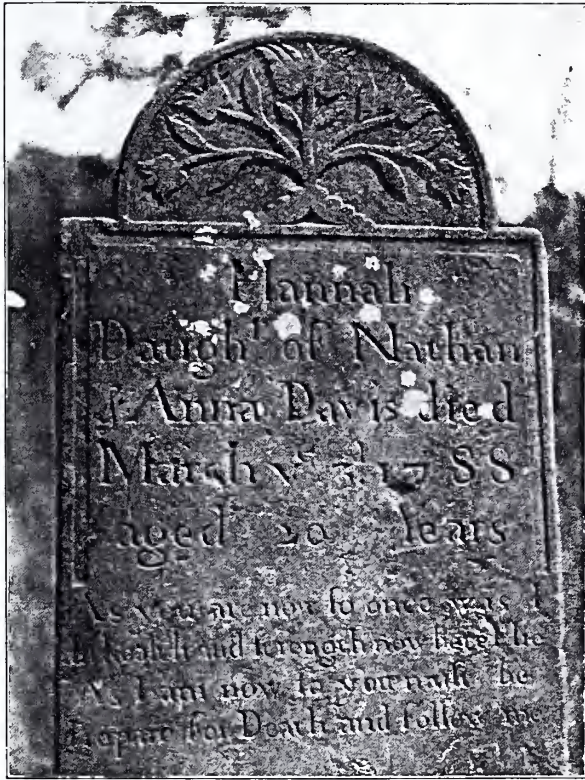 Hannah
Daughr of Nathan
& Anna Davis died
March ye 3d 1788
aged 20 Years
As you are now so once was I
In health and strength now here I lie
As I am now so you must be
Prepare for Death and follow me